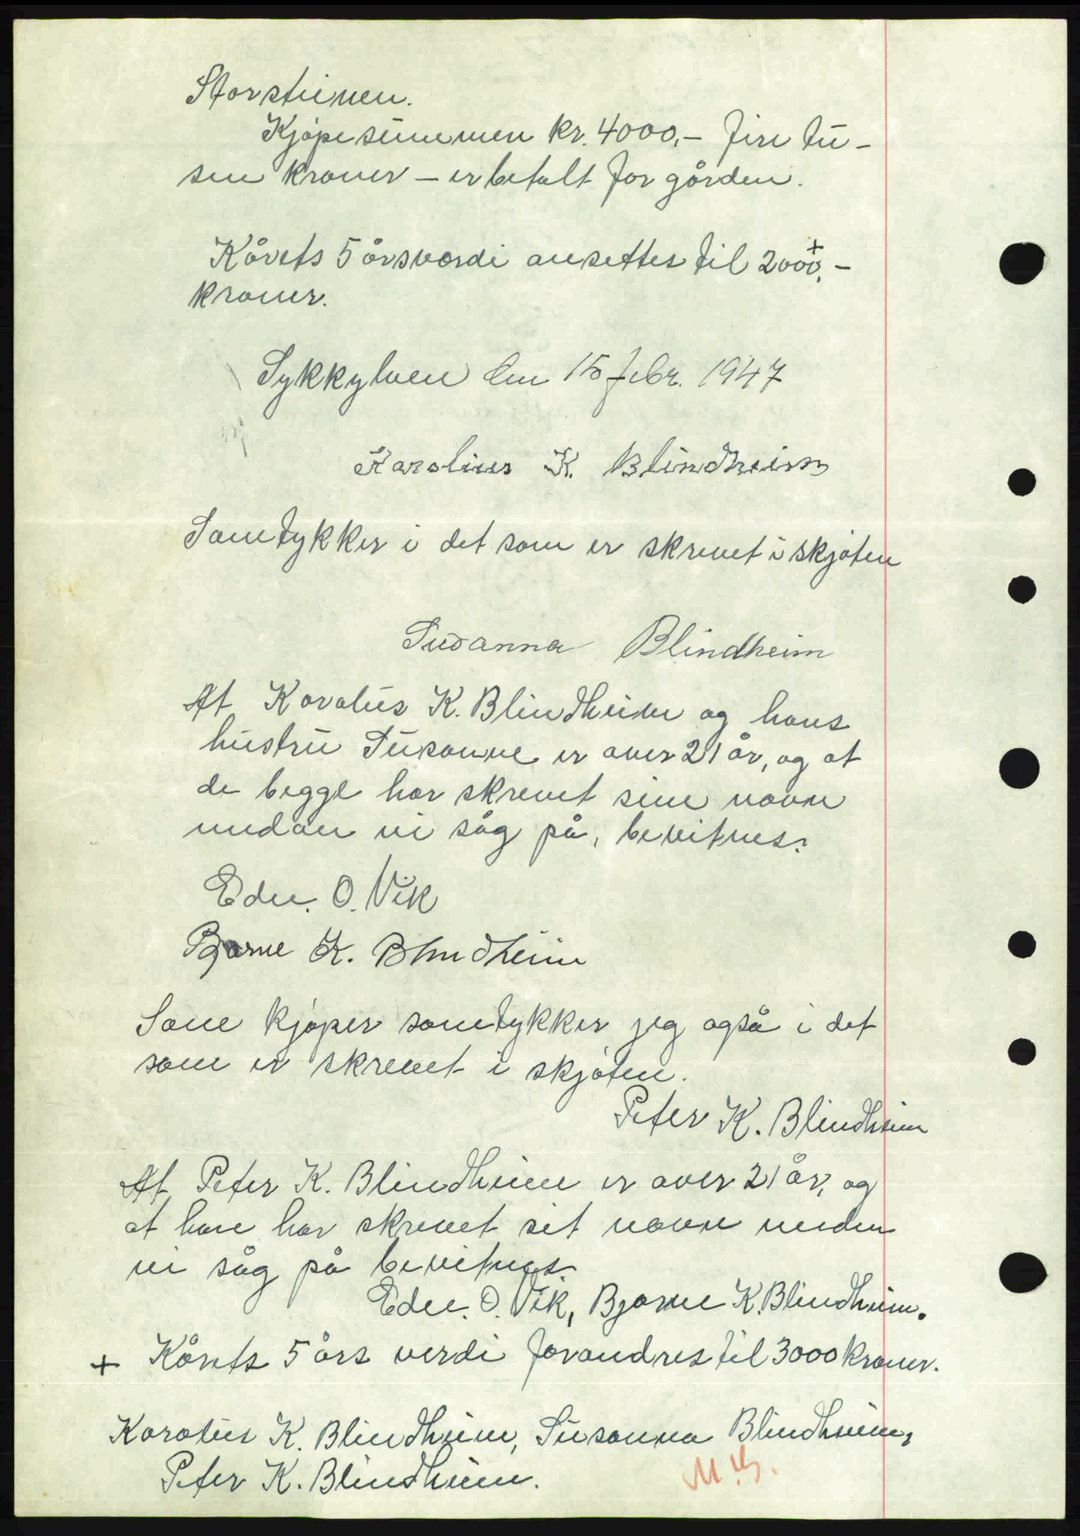 Storstuinen.
Kjøpesummen kr. 4000,- fire tu-
sen kroner - er betalt for gården.
Kårets 5 årsverdi ansettes til 2000,- +
kroner.
Sykkylven den 15 febr. 1947
Karolius K. Blindheim
Samtykker i det som er skrevet i skjøten
Susanna Blindheim
At Karolius K. Blindheim og hans
hustru Susanne er over 21 år, og at
de begge har skrevet sine navn
medan vi såg på, bevitnes:
Edv. O. Vik
Bjarne K. Blindheim
Som kjøper samtykker jeg også i det
som er skrevet i skjøten.
Peter K. Blindheim
At Peter K. Blindheim er over 21 år, og
at han har skrevet sit navn meden
vi såg på bevitnes
Edv. O. Vik, Bjarne K. Blindheim.
+ Kårets 5 års verdi forandres til 3000 kroner.
Karolius K. Blindheim, Susanna Blindheim,
Peter K. Blindheim.